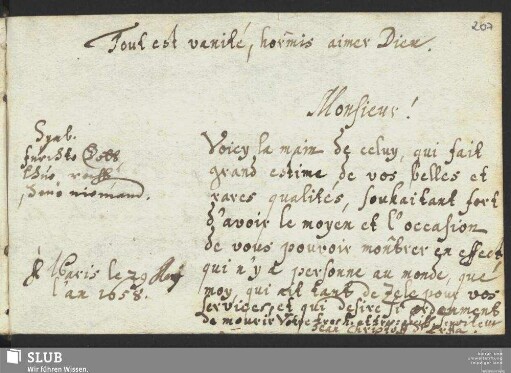 207
Tout est vanité, hormis aimer Dieu.
Monsieur!
Symb.
fürchte Gott
thue recht
scheue niemand.
Voicy la main de celuy, qui fait
grand estime de vos belles et
rares qualités, souhaitant fort
d'avoir le moyen et l'occasion
de vous pouvoir monstrer en effect
qui n'y a personne au monde, que
moy qui ait tant de zele pour vos
services, et qui desire si ardemment
de mourir Vostre tres humble serviteur
Jean Christoff
à Paris le 29
l'an 1658.
SLUB
Wir führen Wissen.